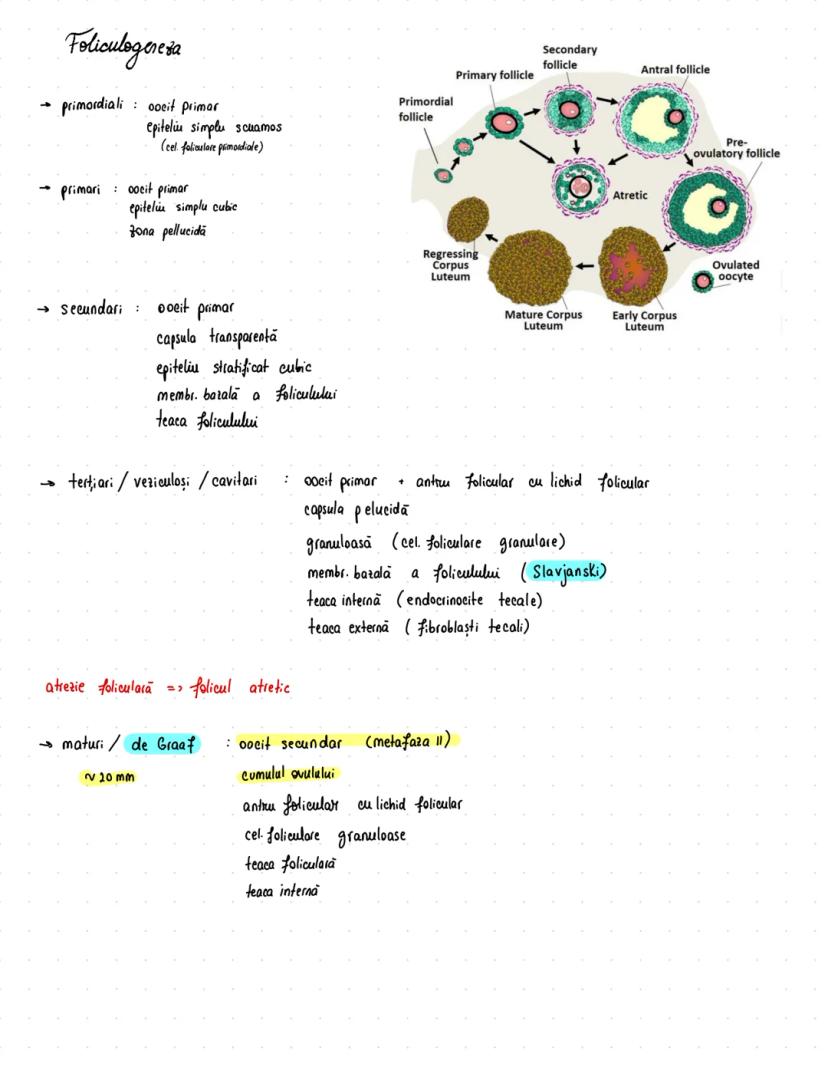 Foliculogeneza
→ primordiali : oocit primar
epiteliu simplu scuamos
(cel. foliculare primordiale)
→ primari : oocit primar
epiteliu simplu cubic
zona pellucidă
→ secundari : oocit primar
capsula transparentă
epiteliu stratificat cubic
membr. bazală a foliculului
teaca foliculului
Secondary
follicle
Primary follicle
Antral follicle
Primordial
follicle
Pre-
ovulatory follicle
Atretic
Regressing
Corpus
Luteum
Ovulated
oocyte
Mature Corpus
Luteum
Early Corpus
Luteum
→ terțiari / veziculoși / cavitari : oocit primar + antru folicular cu lichid folicular
capsula pelucidă
granuloasă (cel. foliculare granulare)
membr. bazală a foliculului (Slavjanski)
teaca internă (endocrinocite tecale)
teaca externă (fibroblaști tecali)
atrezie foliculară => folicul atretic
→ maturi / de Graaf : oocit secundar (metafaza II)
~ 20 mm cumulul ovulului
antru folicular cu lichid folicular
cel. foliculare granuloase
teaca foliculară
teaca internă